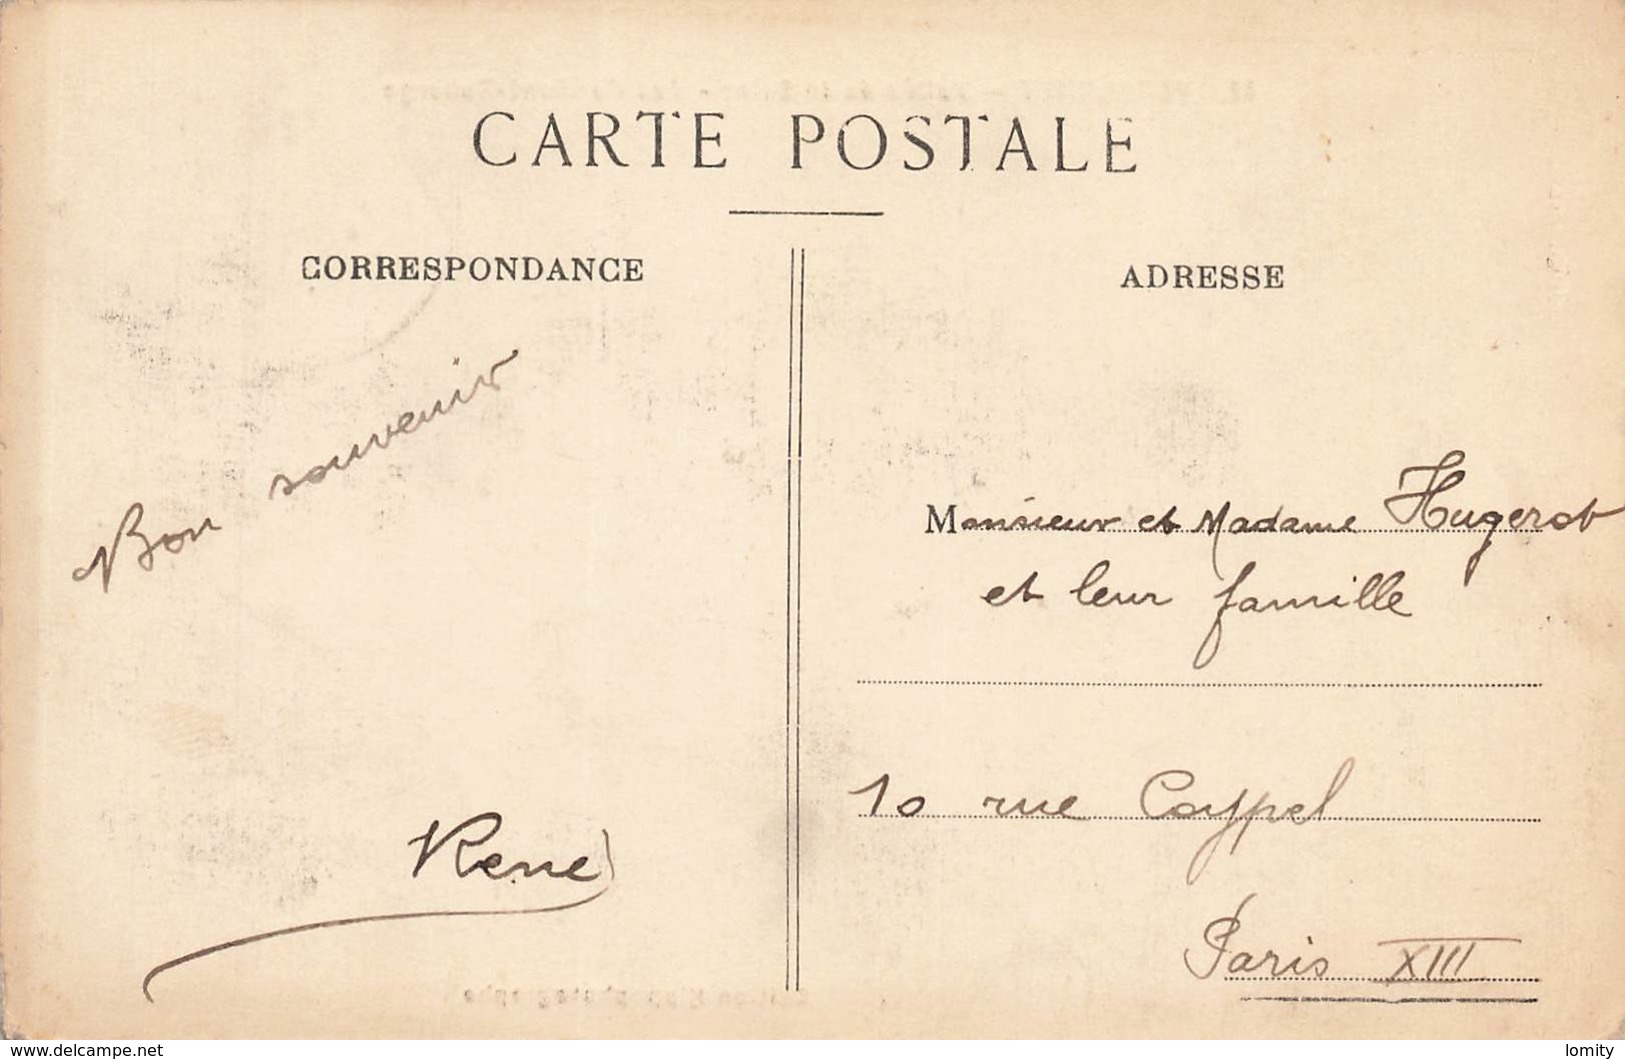 CARTE POSTALE
CORRESPONDANCE
ADRESSE
Bon souvenir
René
Monsieur et Madame Hugerot
et leur famille
10 rue Coypel
Paris XIII
www.delcampe.net
lomity